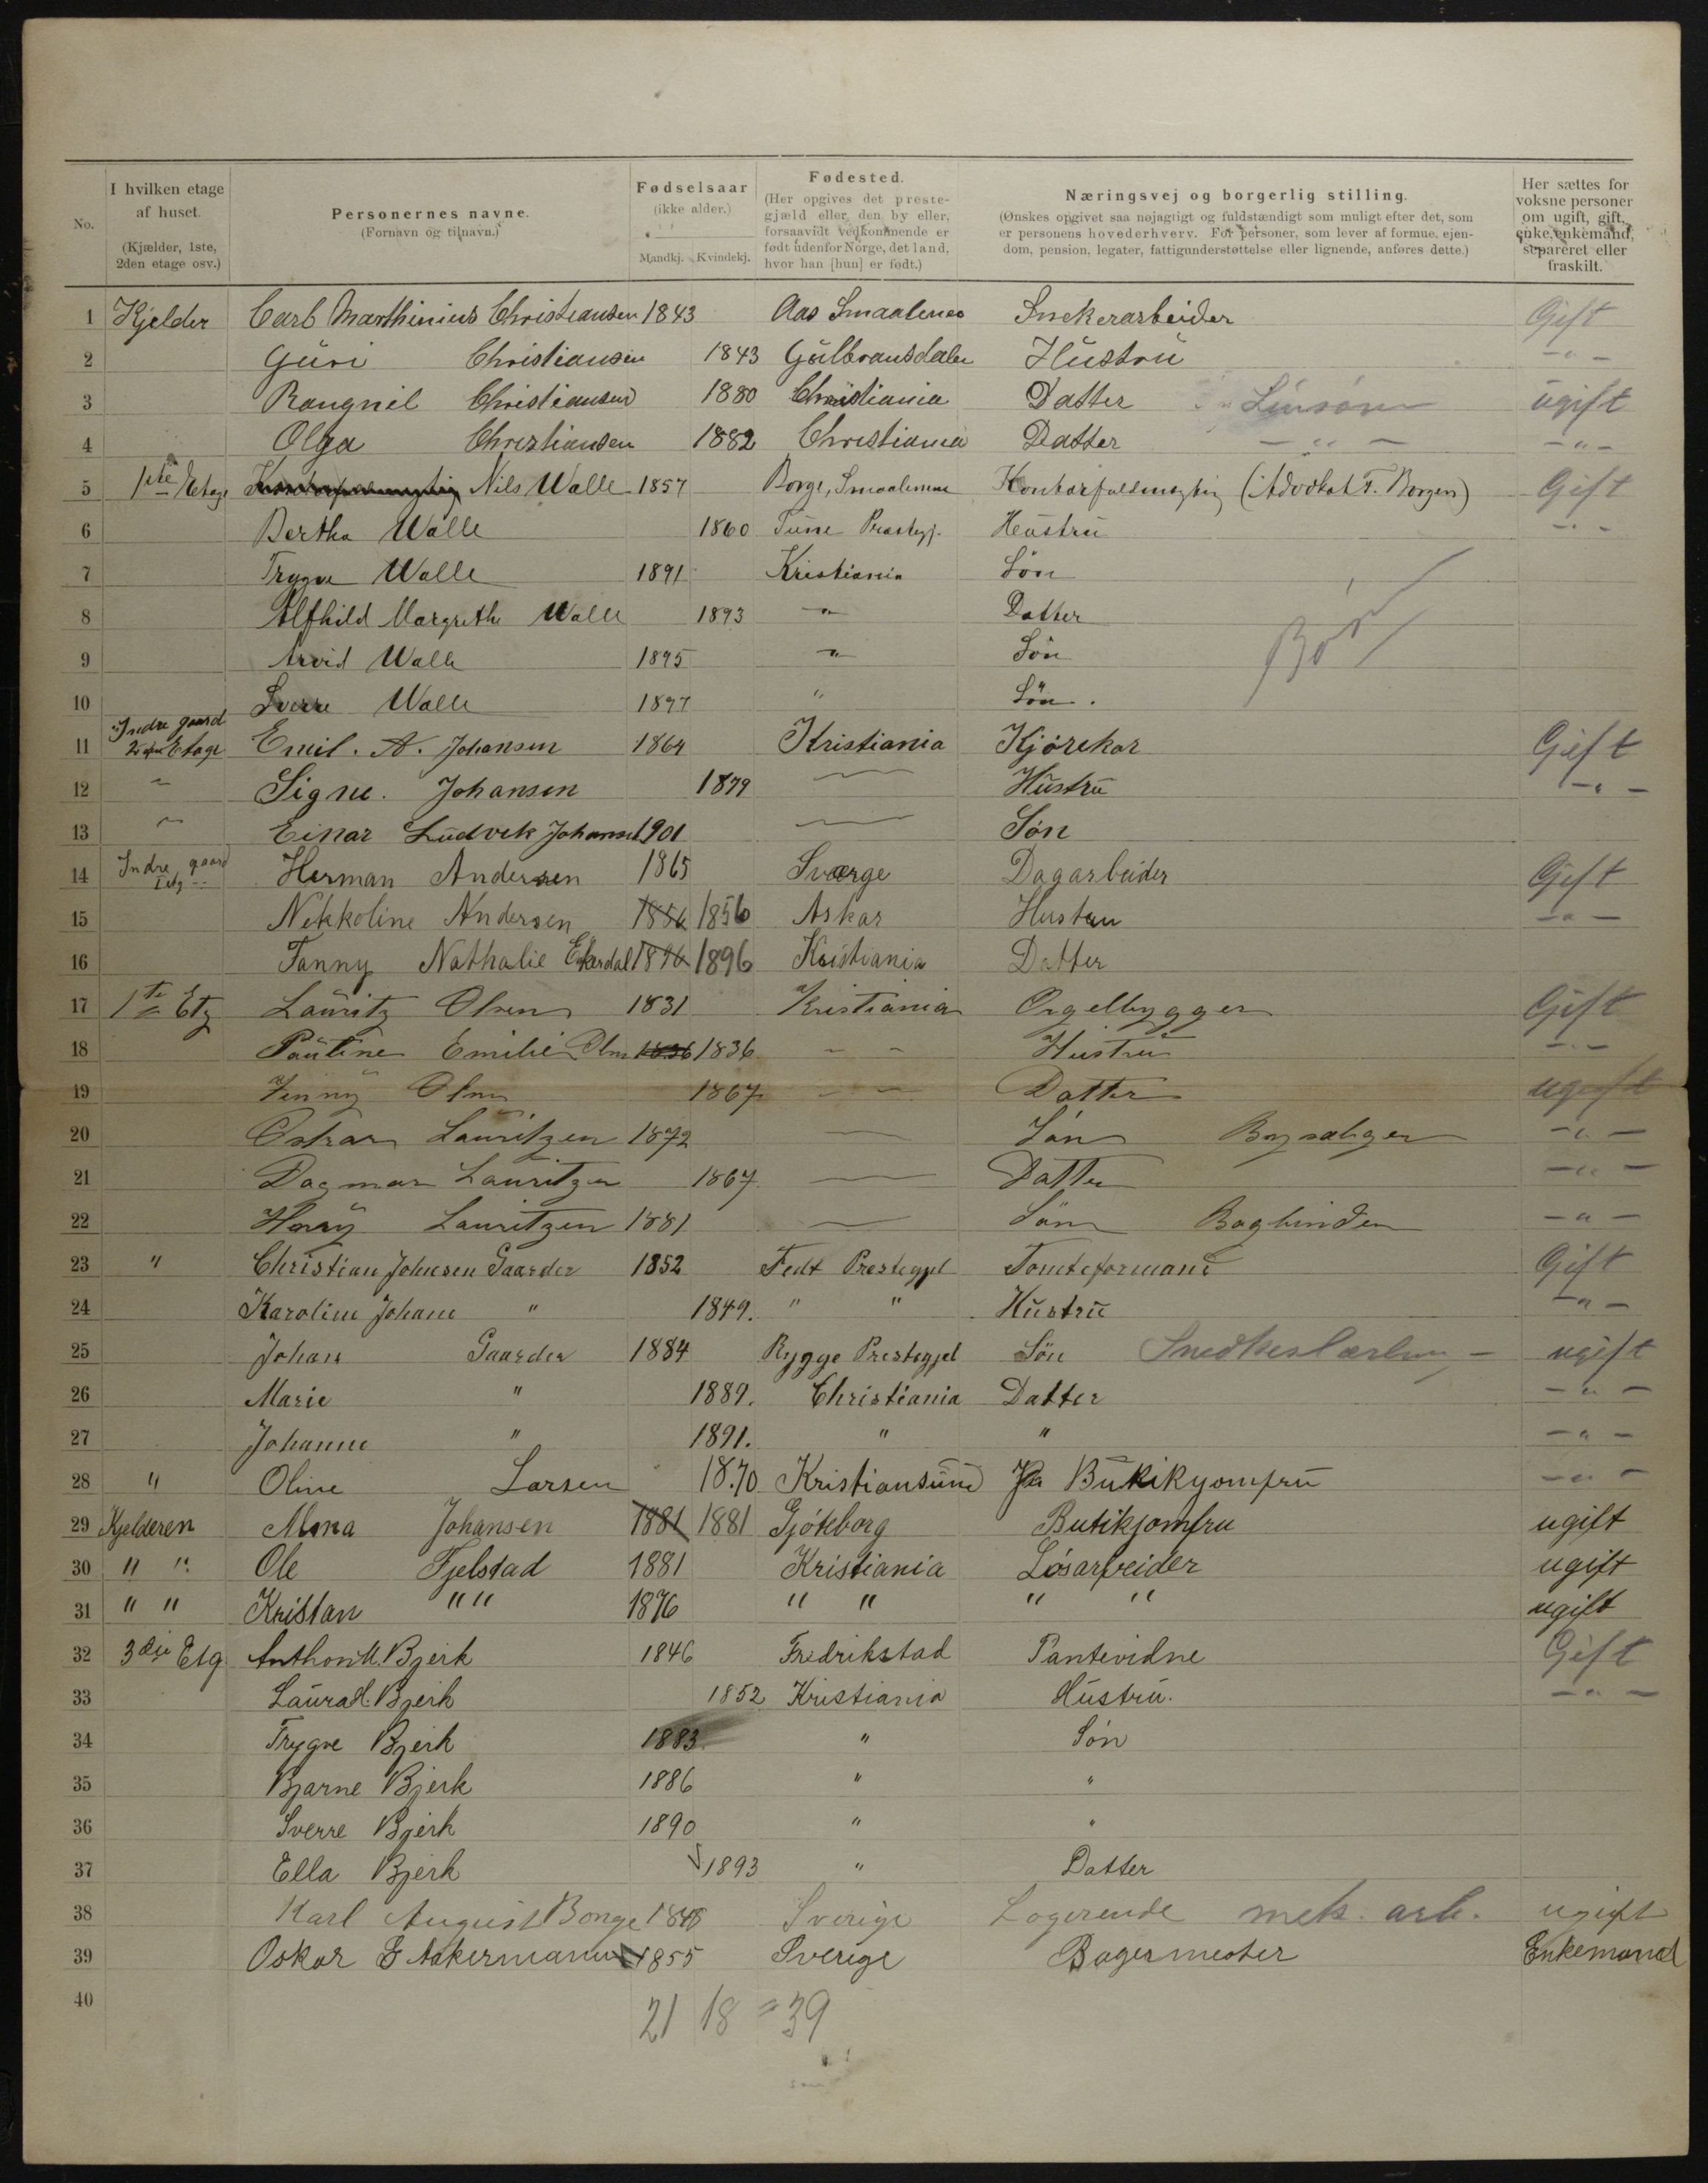 No.
I hvilken etage af huset.
(Kjælder, 1ste, 2den etage osv.)
Personernes navne.
(Fornavn og tilnavn.)
Fødselsaar
(ikke alder.)
Mandkj. Kvindekj.
Fødested.
(Her opgives det prestegjæld eller den by eller, forsaavidt vedkommende er født udenfor Norge, det land, hvor han [hun] er født.)
Næringsvej og borgerlig stilling.
(Ønskes opgivet saa nøjagtigt og fuldstændigt som muligt efter det, som er personens hovederhverv. For personer, som lever af formue, ejendom, pension, legater, fattigunderstøttelse eller lignende, anføres dette.)
Her sættes for voksne personer om ugift, gift, enke, enkemand, separeret eller fraskilt.
1 Kjelder Carl Marthinius Christiansen 1843 Aas Smaalenes Snekerarbeider Gift
2 Guri Christiansen 1843 Gulbransdalen Hustru -"-
3 Rangnil Christiansen 1880 Christiania Datter ugift
4 Olga Christiansen 1882 Christiania Datter -"- -"-
5 1ste Etage Nils Walle 1857 Borge, Smaalenene Kontorfuldmægtig (Advokat F. Borgen) Gift
6 Bertha Walle 1860 Tune Prestegj. Hustru -"-
7 Trygve Walle 1891 Kristiania Søn
8 Alfhild Margrethe Walle 1893 " Datter
9 Arvid Walle 1895 " Søn
10 Sverre Walle 1897 " Søn.
Børn
Indre gaard
11 2den Etage Emil. A. Johansen 1864 Kristiania Kjørekar Gift
12 " Signe. Johansen 1879 — Hustru -"-
13 " Einar Ludvek Johansen 1901 — Søn
14 Indre gaard I etg Herman Andersen 1865 Sværge Dagarbeider Gift
15 Nekkoline Andersen 1856 1856 Askar Hustru -"-
16 Fanny Nathalie Ekerdal 1896 1896 Kristiania Datter
17 1ste Etg Lauritz Olsen 1831 Kristiania Orgelbygger Gift
18 Pauline Emilie Olsen 1836 1836 - - Hustru -"-
19 Jenny Olsen 1867 - - Datter ugift
20 Oskar Lauritzen 1872 — Søn -"-
21 Dagmar Lauritzen 1867 — Datter -"-
22 Harry Lauritzen 1881 — Søn Bogbinder -"-
23 " Christian Johnsen Gaarder 1852 Fedt Prestegjel Tomteformand Gift
24 Karoline Johane " 1849. " " Hustru -"-
25 Johan Gaarder 1884 Rygge Prestegjel Søn Snedkerlærling - ugift
26 Marie " 1889. Christiania Datter -"-
27 Johanne " 1891. " " -"-
28 " Oline Larsen 1870 Kristiansund Butikjomfru -"-
29 Kjelderen Alma Johansen 1881 1881 Gjøteborg Butikjomfru ugift
30 " " Ole Fjelstad 1881 Kristiania Løsarbeider ugift
31 " " Kristan " " 1876 " " " " ugift
32 3die Etg. Anthon M. Bjerk 1846 Fredrikstad Pantevidne Gift
33 Laura H. Bjerk 1852 Kristiania Hustru. -"-
34 Trygve Bjerk 1883 " Søn
35 Bjarne Bjerk 1886 " "
36 Sverre Bjerk 1890 " "
37 Ella Bjerk 1893 " Datter
38 Karl August Bonge 1848 Sverige Logerende mek. arb. ugift
39 Oskar E Askermann 1855 Sverige Bagermester Enkemand
40
21 18 = 39